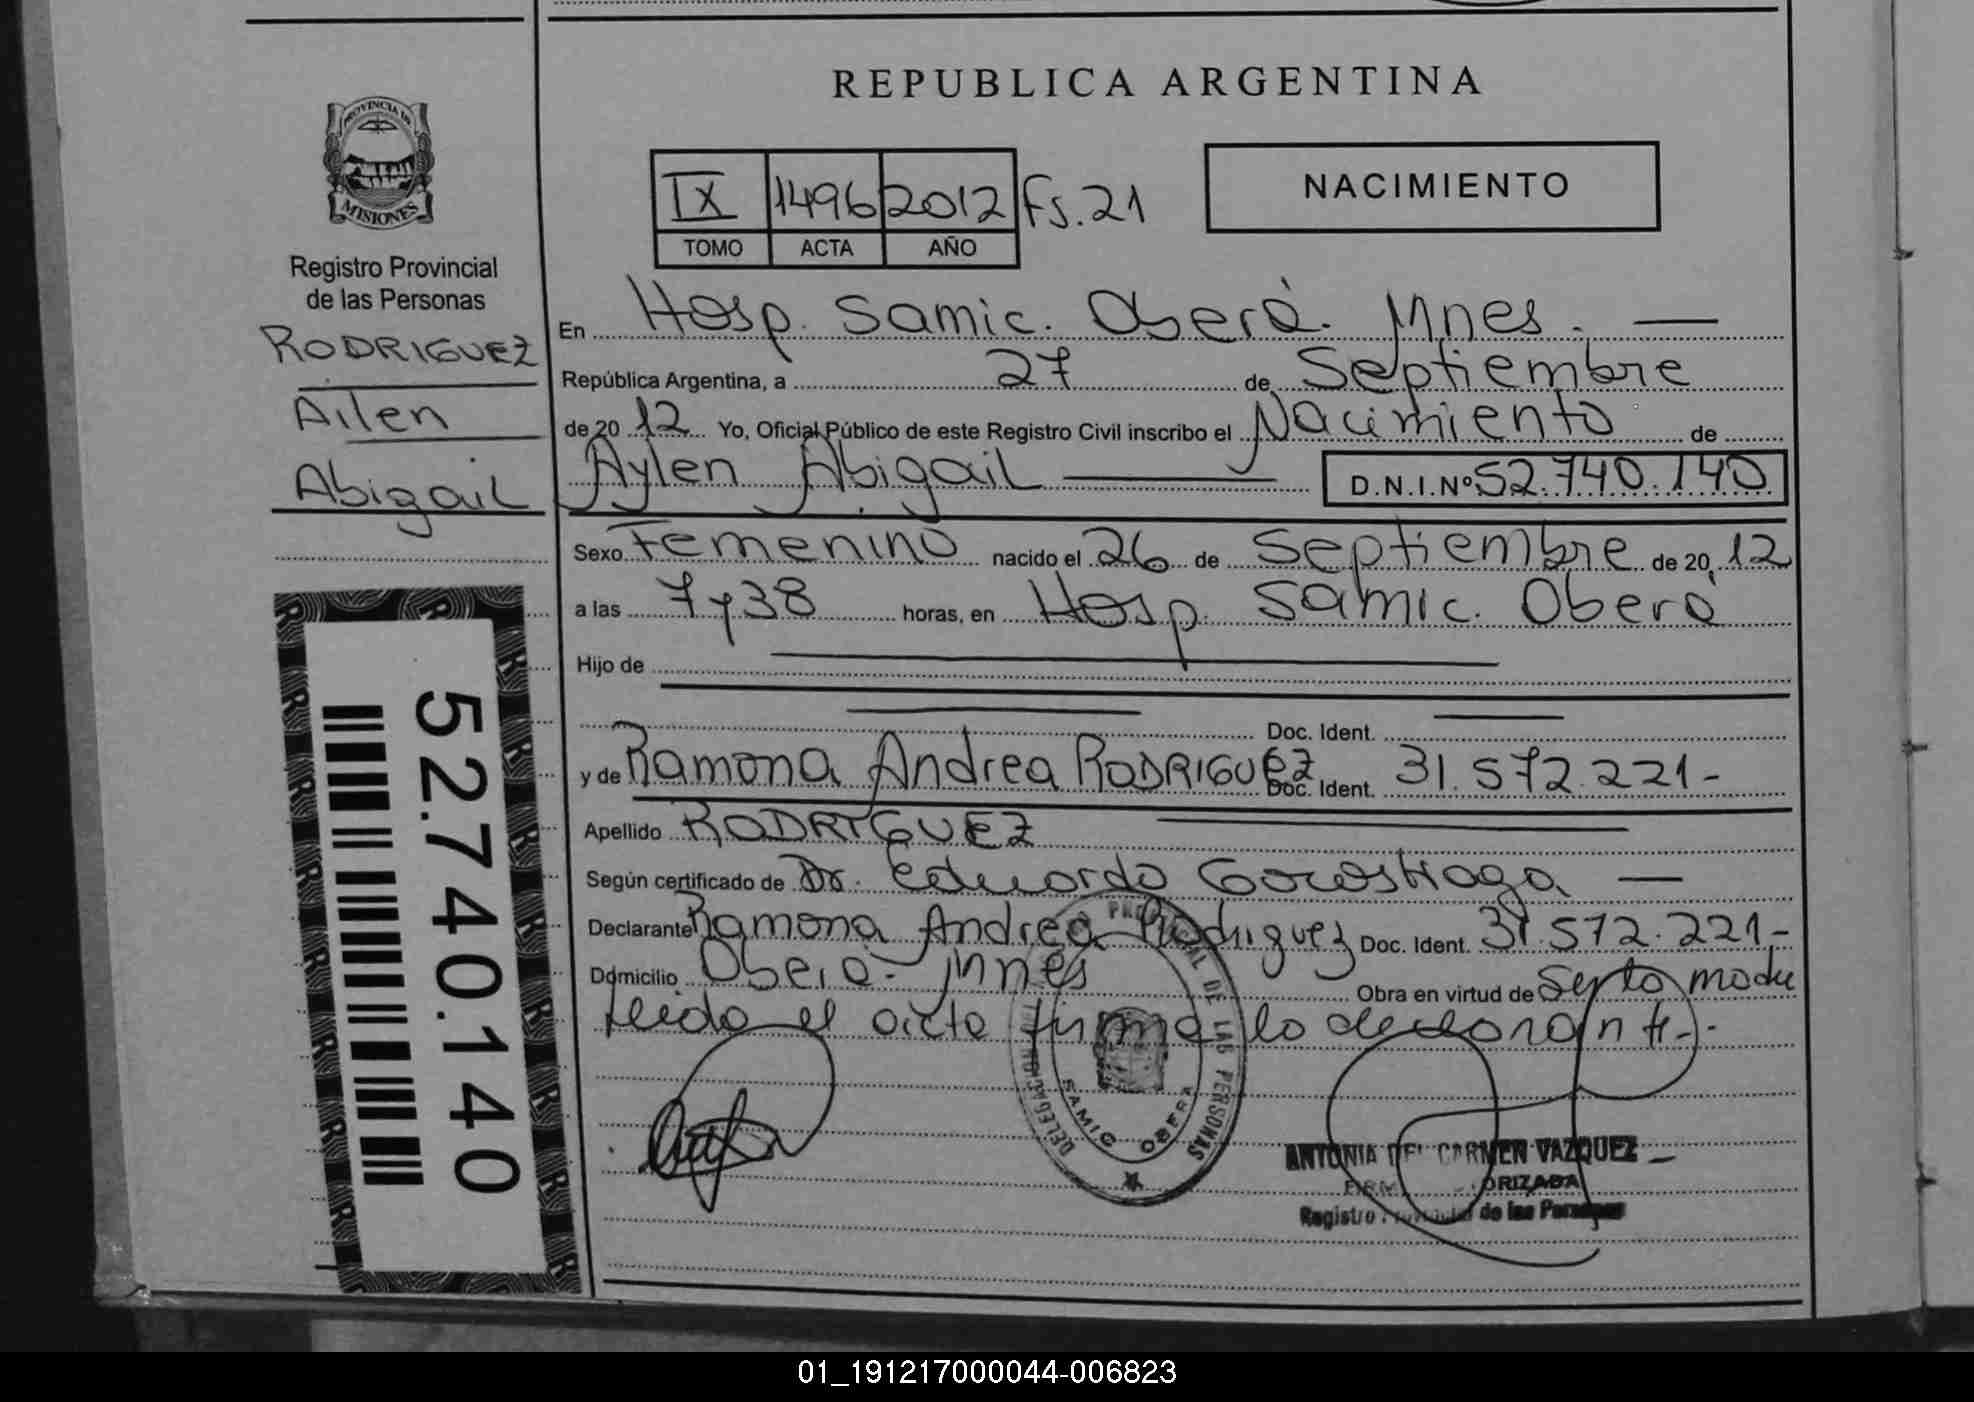 REPUBLICA ARGENTINA
PROVINCIA DE
MISIONES
Registro Provincial
de las Personas
RODRIGUEZ
Ailen
Abigail
52.740.140
IX 1496 2012 Fs.21
TOMO ACTA AÑO
NACIMIENTO
En Hosp. Samic. Oberá. Mnes.
República Argentina, a 27 de Septiembre
de 20 12 Yo, Oficial Público de este Registro Civil inscribo el Nacimiento de
Aylen Abigail D.N.I.Nº 52.740.140
Sexo Femenino nacido el 26 de Septiembre de 20 12
a las 7 y 38 horas, en Hosp. Samic. Oberá
Hijo de
Doc. Ident.
y de Ramona Andrea RODRIGUEZ Doc. Ident. 31.572.221-
Apellido RODRIGUEZ
Según certificado de Dr. Eduardo Gorostiaga
Declarante Ramona Andrea Rodriguez Doc. Ident. 31.572.221-
Domicilio Oberá- Mnes Obra en virtud de
Leida el acta firma la declarante-.
DELEGACION PROVINCIAL DE LAS PERSONAS
SAMIC OBERA
ANTONIA DEL CARMEN VAZQUEZ
FIRMA AUTORIZADA
Registro Provincial de las Personas
01_191217000044-006823